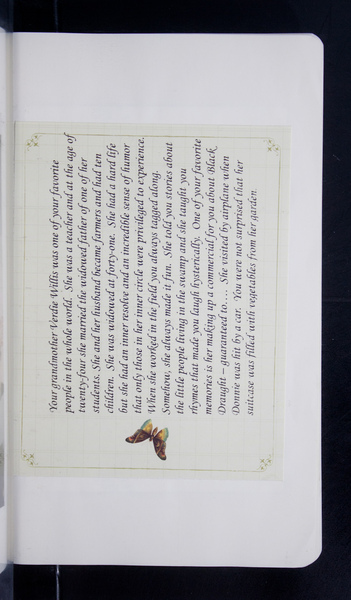 Your grandmother Verdie Willis was one of your favorite
people in the whole world. She was a teacher and at the age of
twenty-four she married the widowed father of one of her
students. She and her husband became farmers and had ten
children. She was widowed at forty-one. She had a hard life
but she had an inner resolve and an incredible sense of humor
that only those in her inner circle were privileged to experience.
When she worked in the field you always tagged along.
Somehow, she always made it fun. She told you stories about
the little people living in the swamp and she taught you
rhymes that made you laugh hysterically. One of your favorite
memories is her making up a commercial for you about Black
Draught – guaranteed to.... She visited by airplane when
Donnie was hit by a car. You were not surprised that her
suitcase was filled with vegetables from her garden.